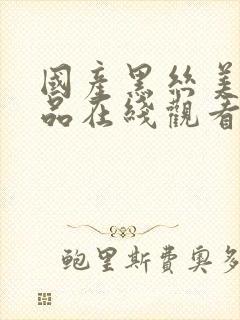 國產黑絲美
品在綫觀看
鮑里斯費奧多